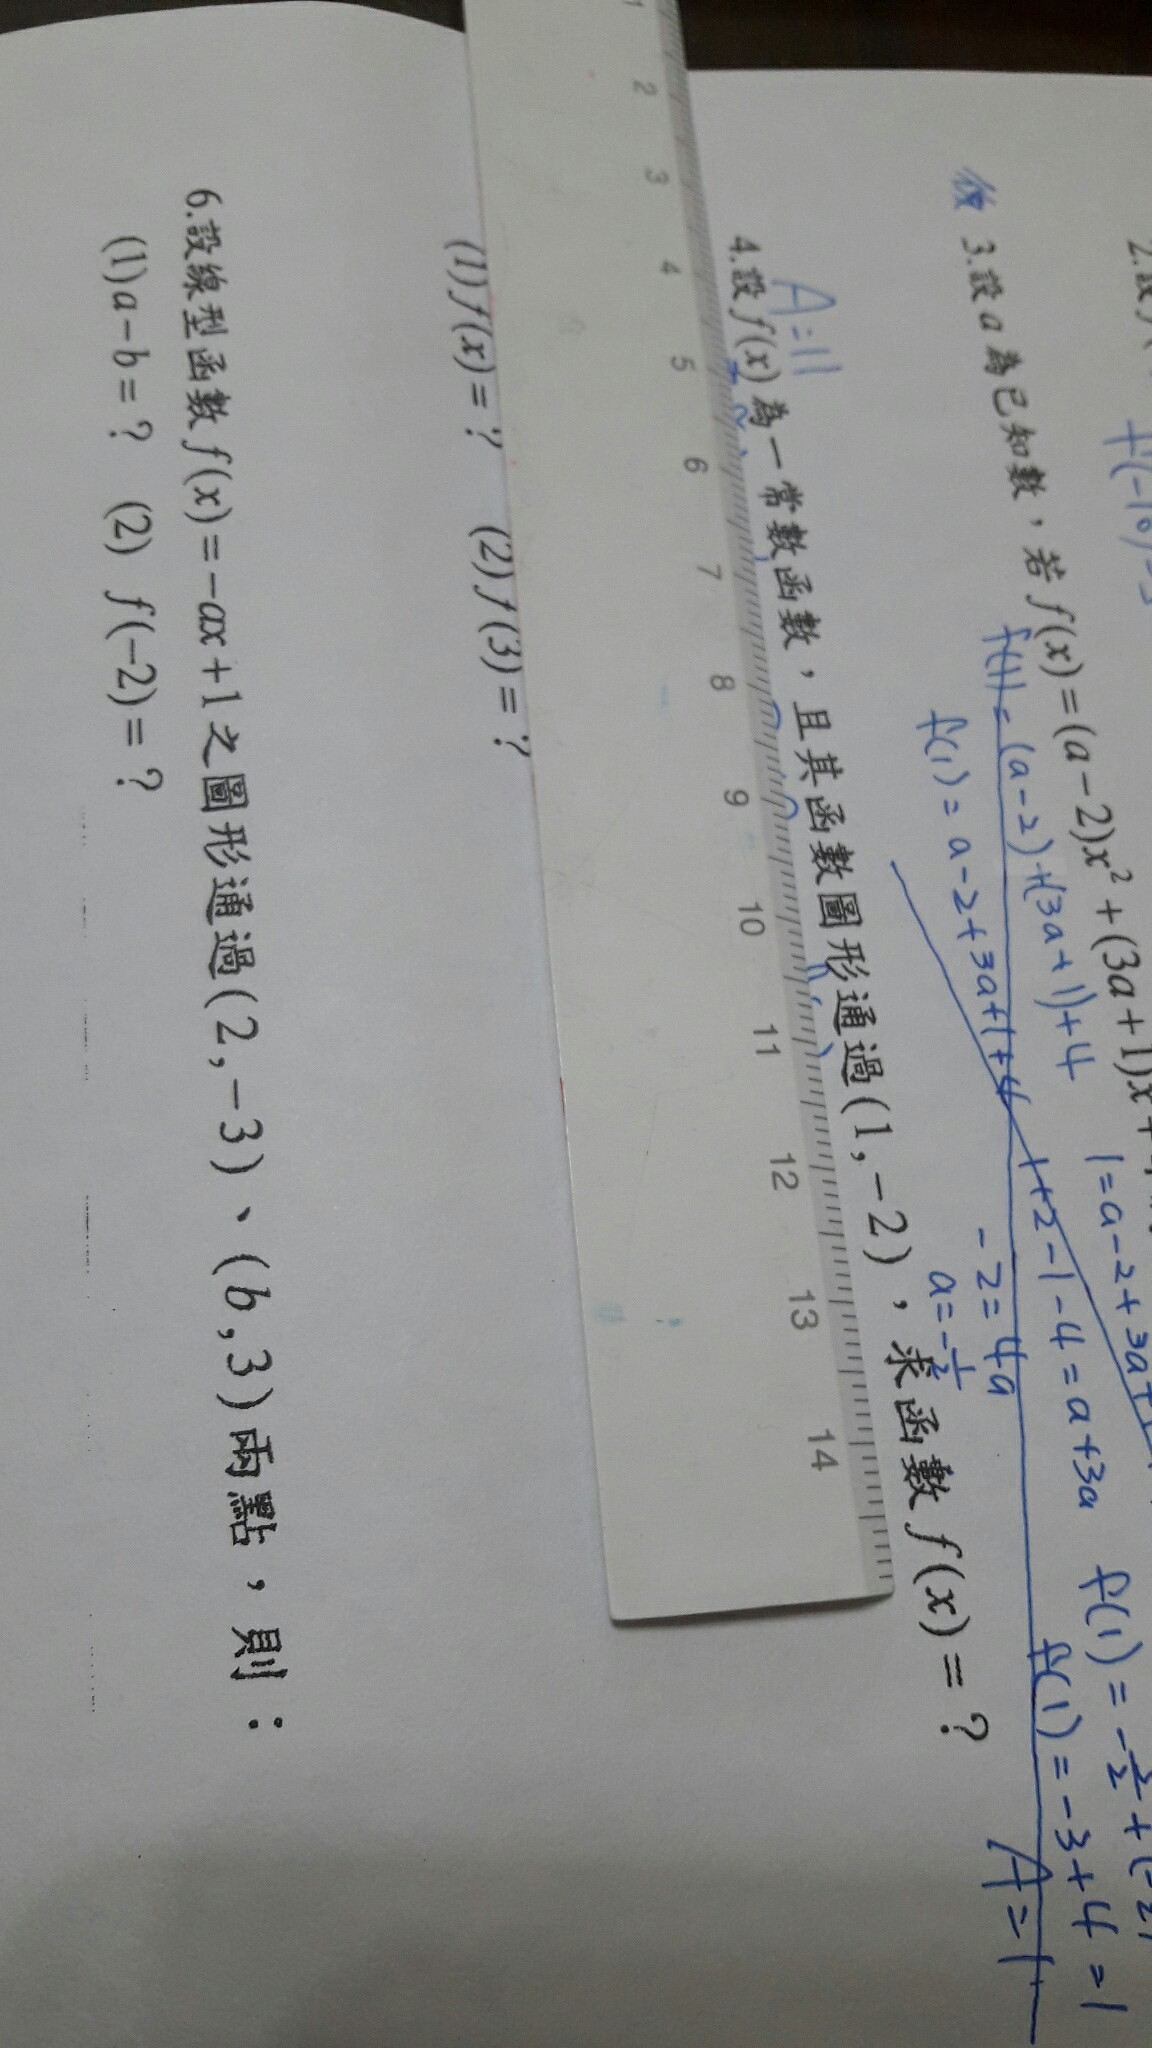 2.設
f(-10)=3
做 3.設a為已知數，若f(x)=(a-2)x²+(3a+1)x+
f(1)=(a-2)+(3a+1)+4
1=a-2+3a+
f(1)=a-2+3a+1+4
1+2-1-4=a+3a
-2=4a
a=-1/2
f(1)=-5/2+(-
f(1)=-3+4=1
A=1
A=11
4.設f(x)為一常數函數，且其函數圖形通過(1,-2)，求函數f(x)=?
1 2 3 4 5 6 7 8 9 10 11 12 13 14
(1)f(x)=? (2)f(3)=?
6.設線型函數f(x)=-ax+1之圖形通過(2,-3)、(b,3)兩點，則：
(1)a-b=? (2) f(-2)=?